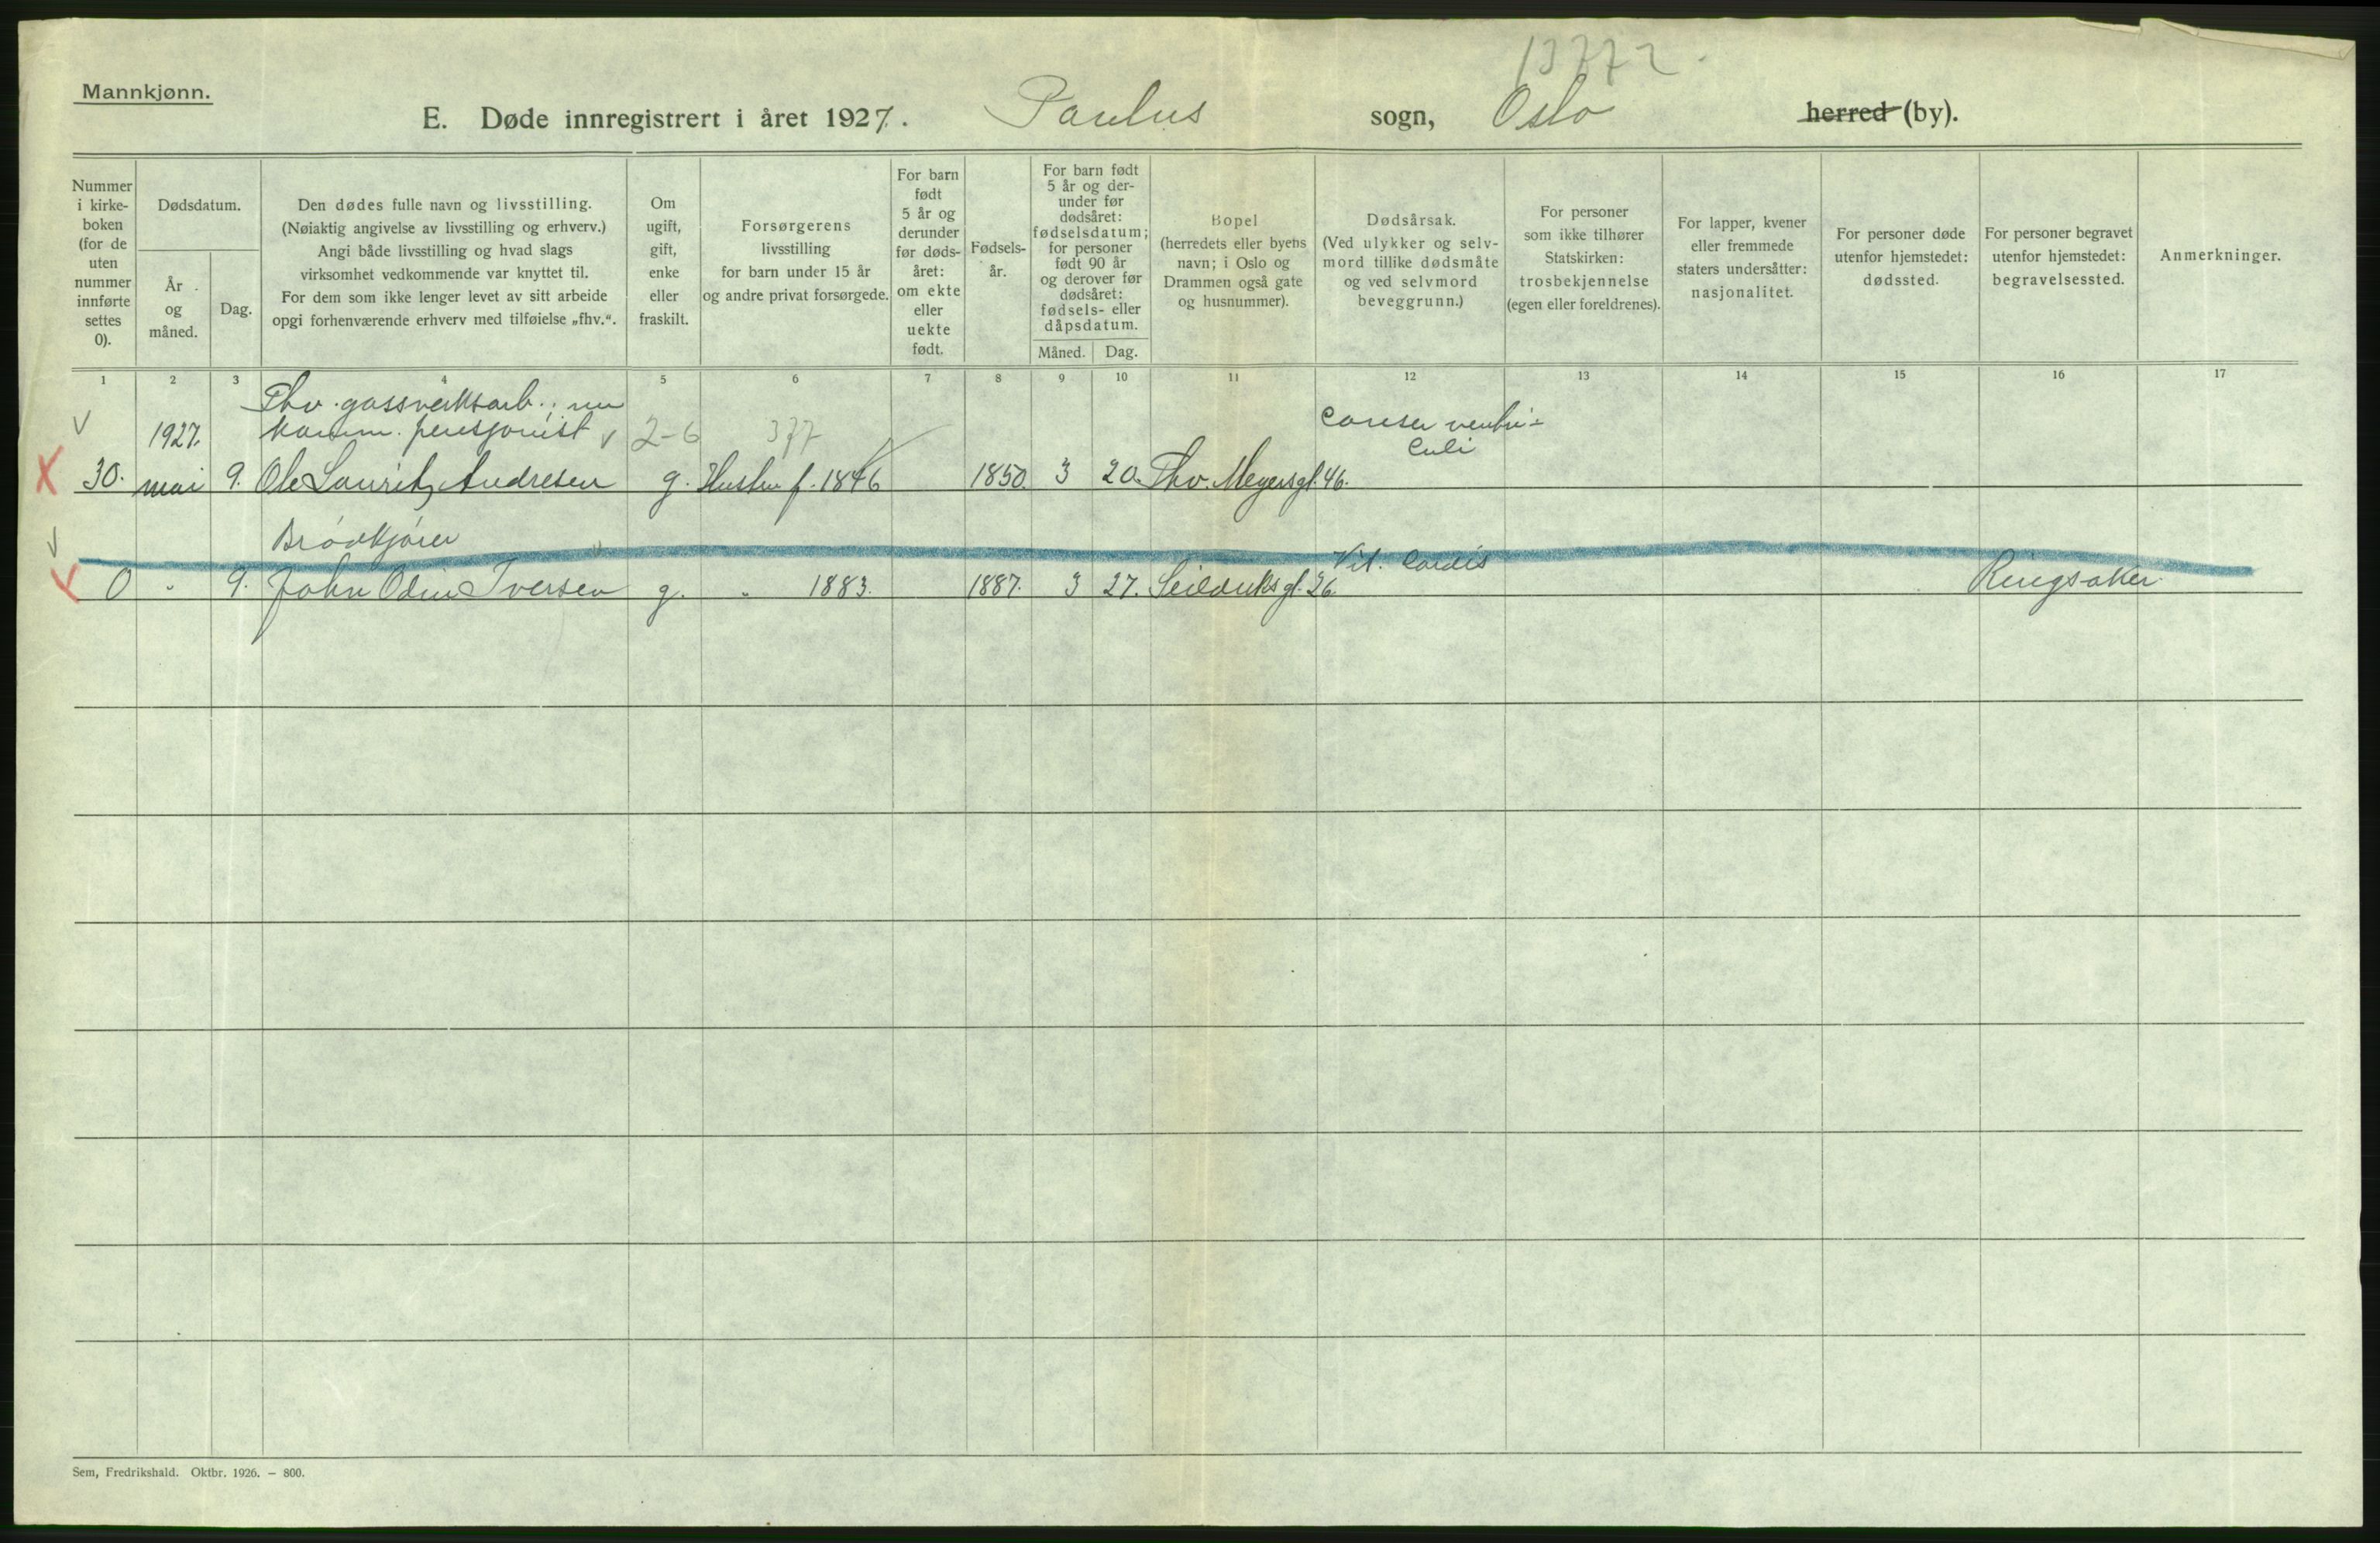 13772.
Mannkjønn.
E. Døde innregistrert i året 1927. Paulus sogn, Oslo herred (by).
Nummer i kirke- boken (for de uten nummer innførte settes 0).
Dødsdatum.
År og måned.
Dag.
Den dødes fulle navn og livsstilling.
(Nøiaktig angivelse av livsstilling og erhverv.)
Angi både livsstilling og hvad slags
virksomhet vedkommende var knyttet til.
For dem som ikke lenger levet av sitt arbeide
opgi forhenværende erhverv med tilføielse „fhv.“.
Om
ugift,
gift,
enke
eller
fraskilt.
Forsørgerens
livsstilling
for barn under 15 år
og andre privat forsørgede.
For barn
født
5 år og
derunder
før døds-
året:
om ekte
eller
uekte
født.
Fødsels-
år.
For barn født
5 år og der-
under før
dødsåret:
fødselsdatum;
for personer
født 90 år
og derover før
dødsåret:
fødsels- eller
dåpsdatum.
Måned. Dag.
Bopel
(herredets eller byens
navn; i Oslo og
Drammen også gate
og husnummer).
Dødsårsak.
(Ved ulykker og selv-
mord tillike dødsmåte
og ved selvmord
beveggrunn.)
For personer
som ikke tilhører
Statskirken:
trosbekjennelse
(egen eller foreldrenes).
For lapper, kvener
eller fremmede
staters undersåtter:
nasjonalitet.
For personer døde
utenfor hjemstedet:
dødssted.
For personer begravet
utenfor hjemstedet:
begravelsessted.
Anmerkninger.
1 2 3 4 5 6 7 8 9 10 11 12 13 14 15 16 17
Fhv. gassverksarb.; nu
1927. komm. pensjonist 2-6 377 Cancer ventri-
culi
30. mai 9. Ole Lauritz Andresen g. Hustru f. 1846 1850. 3 20. Thv. Meyersgt. 46.
Brødkjører
Vit. cordis
0 " 9. John Odin Iversen g. " 1883. 1887. 3 27. Seilduksgt. 26. Ringsaker.
Sem, Fredrikshald. Oktbr. 1926. — 800.